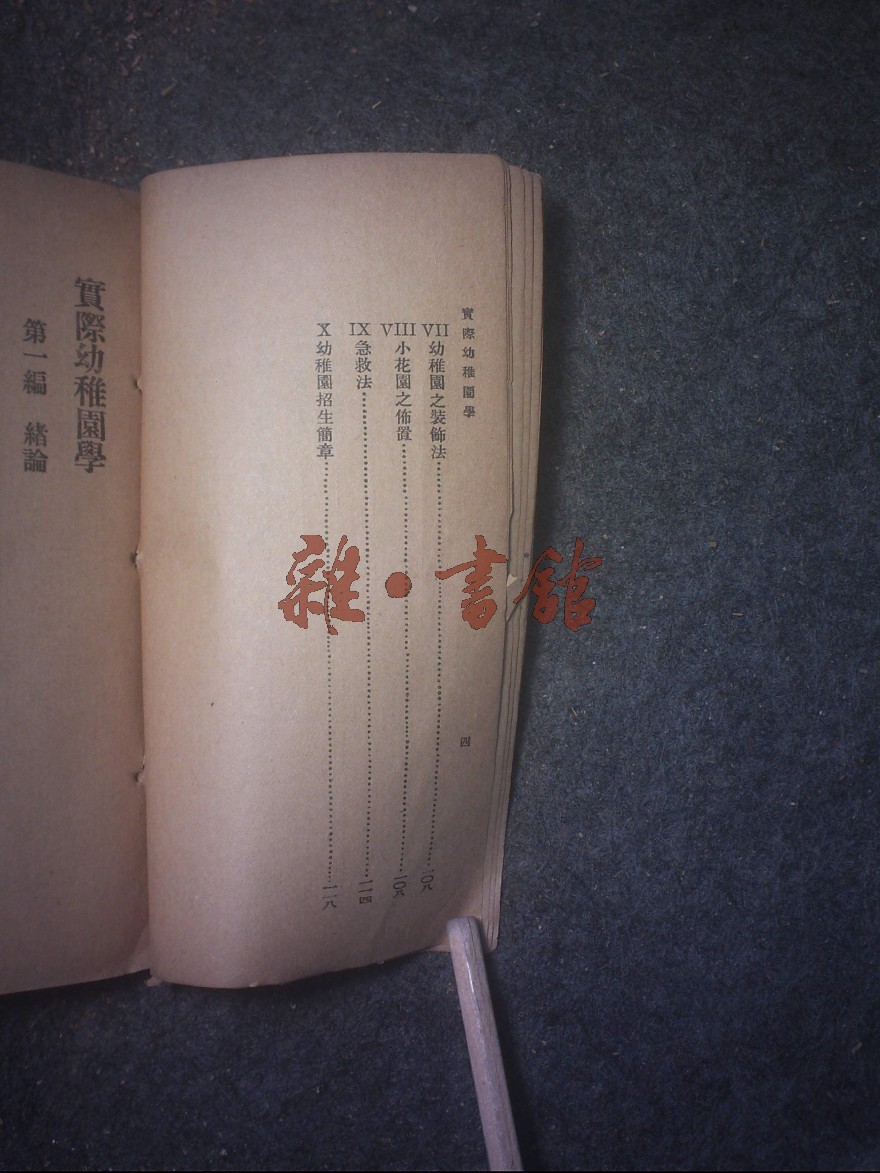 實際幼稚園學
四
VII 幼稚園之裝飾法……一〇八
VIII 小花園之佈置……一〇八
IX 急救法……一一四
X 幼稚園招生簡章……一一八
實際幼稚園學
第一編 緒論
雜·書館